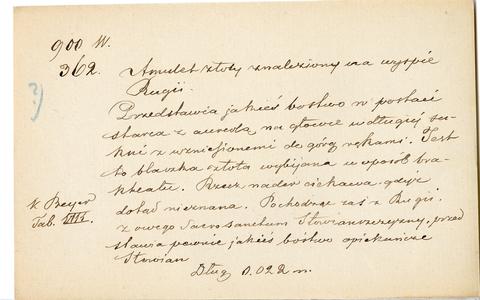 900 W.
362. Amulet złoty znaleziony na wyspie
Rugii.
?)
Przedstawia jakieś bóstwo w postaci
starca z aureolą na głowie w długiej su-
kni z wzniesionemi do góry rękami. Jest
to blaszka złota wybijana w sposób bra-
kteatu. Rzecz nader ciekawa gdyż
k Beyer
Tab. VIII.
dotąd nieznana. Pochodząc zaś z Rugii
z owego Sacrosanctum Słowiańszczyzny, przed
stawia pewnie jakieś bóstwo opiekuńcze
Słowian
Dług. 0.022 m.